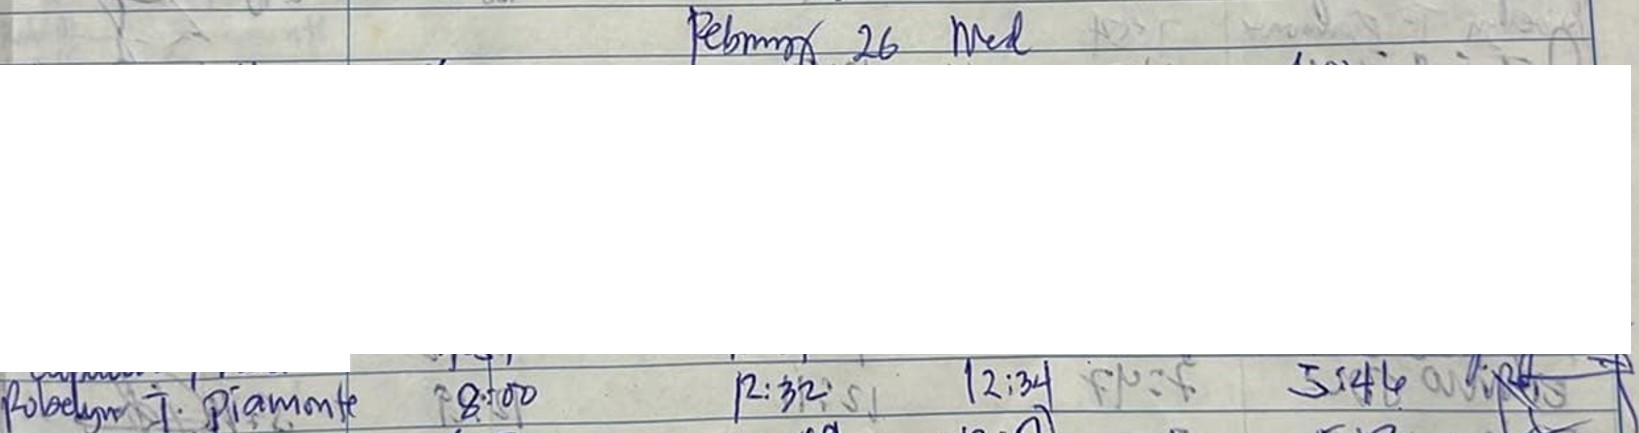 February 26 Wed
Robelyn J. Piamonte 8:00 12:32 12:34 5:46